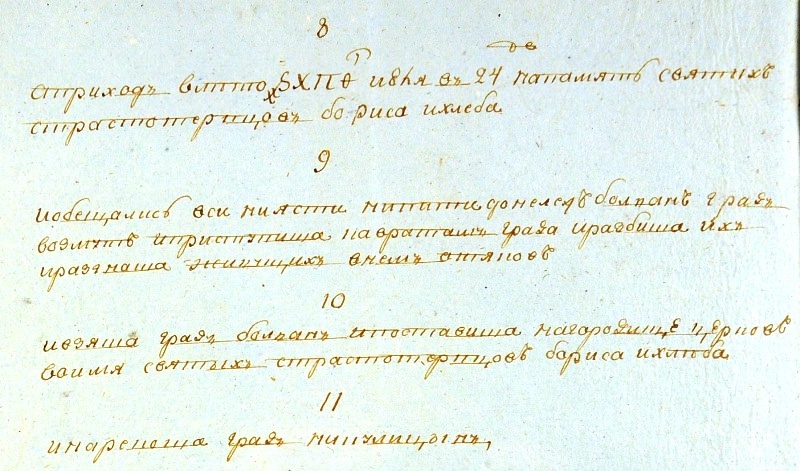 8
а приходъ в лето ҂ЅХПѲ июля въ 24 де на память святыхъ
страстотерпцовъ бориса и хлеба
9
и обещались вси ни ясти ни пити донележъ болванъ градъ
возмутъ и приступиша ко вратамъ града и разбиша ихъ
и разгнаша живущихъ в немъ отяковъ
10
и взяша градъ болванъ и поставиша на городище церковь
во имя святыхъ страстотерпцовъ бориса и хлѣба
11
и нарекоша градъ никулицынъ,